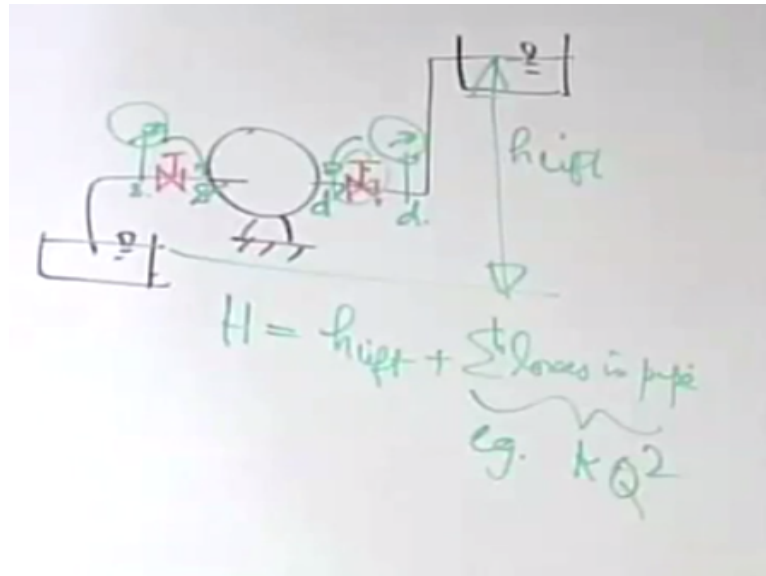 h lift
s
s
d
d
H = h lift + Σ h losses in pipe
eg. k Q²